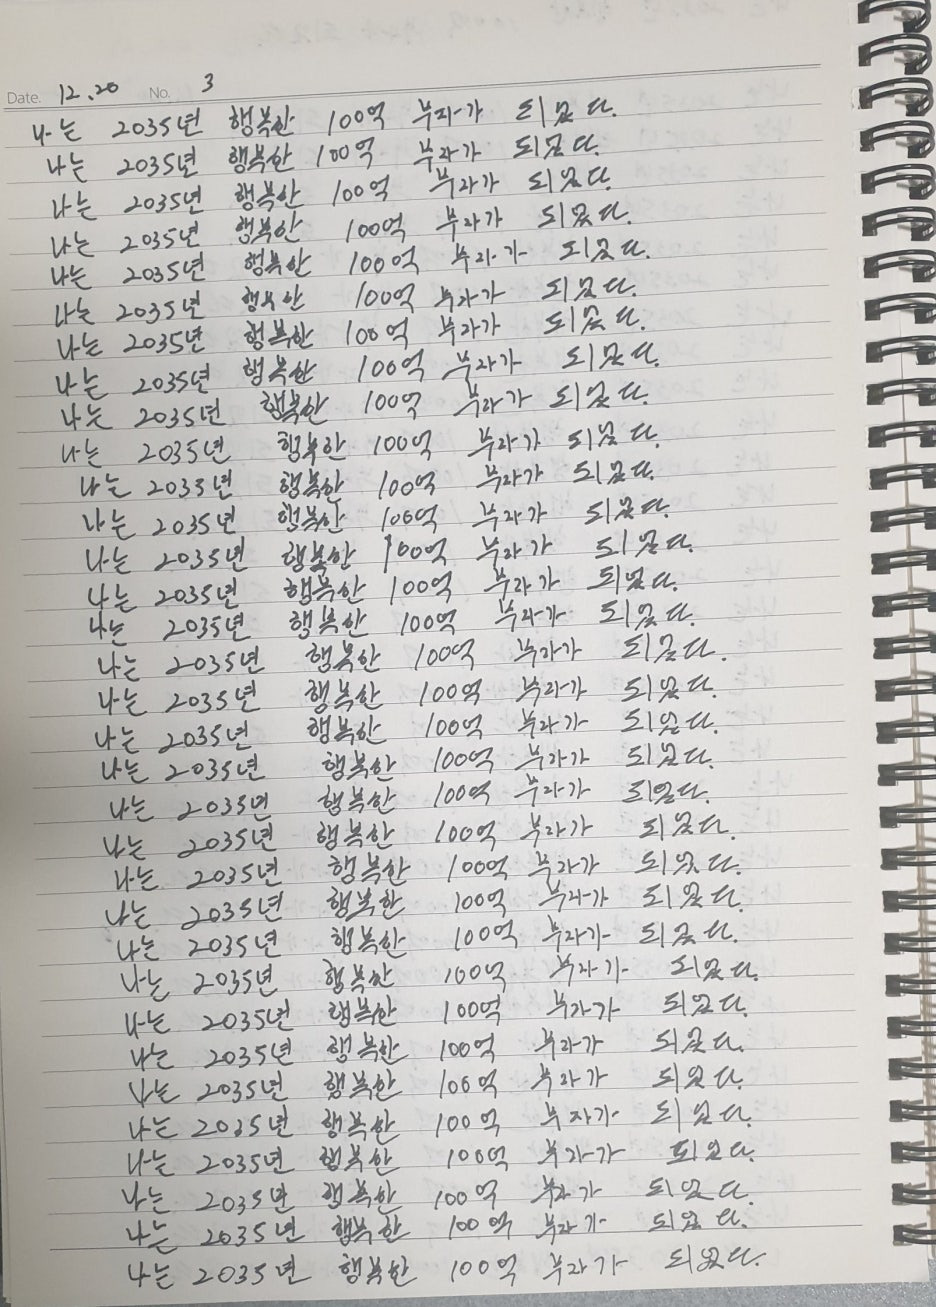 Date. 12.20 No. 3
나는 2035년 행복한 100억 부자가 되었다.
나는 2035년 행복한 100억 부자가 되었다.
나는 2035년 행복한 100억 부자가 되었다.
나는 2035년 행복한 100억 부자가 되었다.
나는 2035년 행복한 100억 부자가 되었다.
나는 2035년 행복한 100억 부자가 되었다.
나는 2035년 행복한 100억 부자가 되었다.
나는 2035년 행복한 100억 부자가 되었다.
나는 2035년 행복한 100억 부자가 되었다.
나는 2035년 행복한 100억 부자가 되었다.
나는 2035년 행복한 100억 부자가 되었다.
나는 2035년 행복한 100억 부자가 되었다.
나는 2035년 행복한 100억 부자가 되었다.
나는 2035년 행복한 100억 부자가 되었다.
나는 2035년 행복한 100억 부자가 되었다.
나는 2035년 행복한 100억 부자가 되었다.
나는 2035년 행복한 100억 부자가 되었다.
나는 2035년 행복한 100억 부자가 되었다.
나는 2035년 행복한 100억 부자가 되었다.
나는 2035년 행복한 100억 부자가 되었다.
나는 2035년 행복한 100억 부자가 되었다.
나는 2035년 행복한 100억 부자가 되었다.
나는 2035년 행복한 100억 부자가 되었다.
나는 2035년 행복한 100억 부자가 되었다.
나는 2035년 행복한 100억 부자가 되었다.
나는 2035년 행복한 100억 부자가 되었다.
나는 2035년 행복한 100억 부자가 되었다.
나는 2035년 행복한 100억 부자가 되었다.
나는 2035년 행복한 100억 부자가 되었다.
나는 2035년 행복한 100억 부자가 되었다.
나는 2035년 행복한 100억 부자가 되었다.
나는 2035년 행복한 100억 부자가 되었다.
나는 2035년 행복한 100억 부자가 되었다.